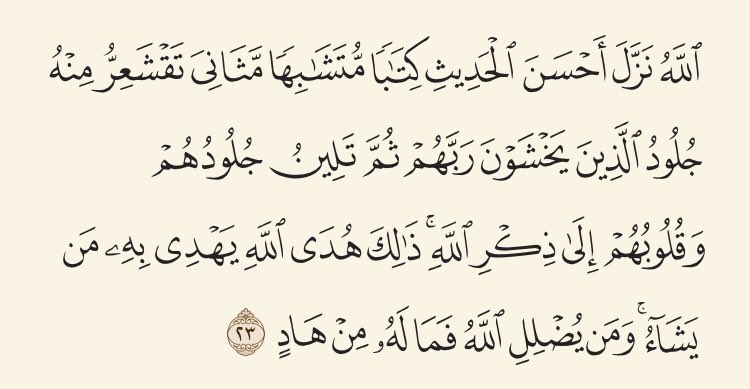 ٱللَّهُ نَزَّلَ أَحْسَنَ ٱلْحَدِيثِ كِتَـٰبًا مُّتَشَـٰبِهًا مَّثَانِىَ تَقْشَعِرُّ مِنْهُ
جُلُودُ ٱلَّذِينَ يَخْشَوْنَ رَبَّهُمْ ثُمَّ تَلِينُ جُلُودُهُمْ
وَقُلُوبُهُمْ إِلَىٰ ذِكْرِ ٱللَّهِ ۚ ذَٰلِكَ هُدَى ٱللَّهِ يَهْدِى بِهِۦ مَن
يَشَآءُ ۚ وَمَن يُضْلِلِ ٱللَّهُ فَمَا لَهُۥ مِنْ هَادٍ ٢٣